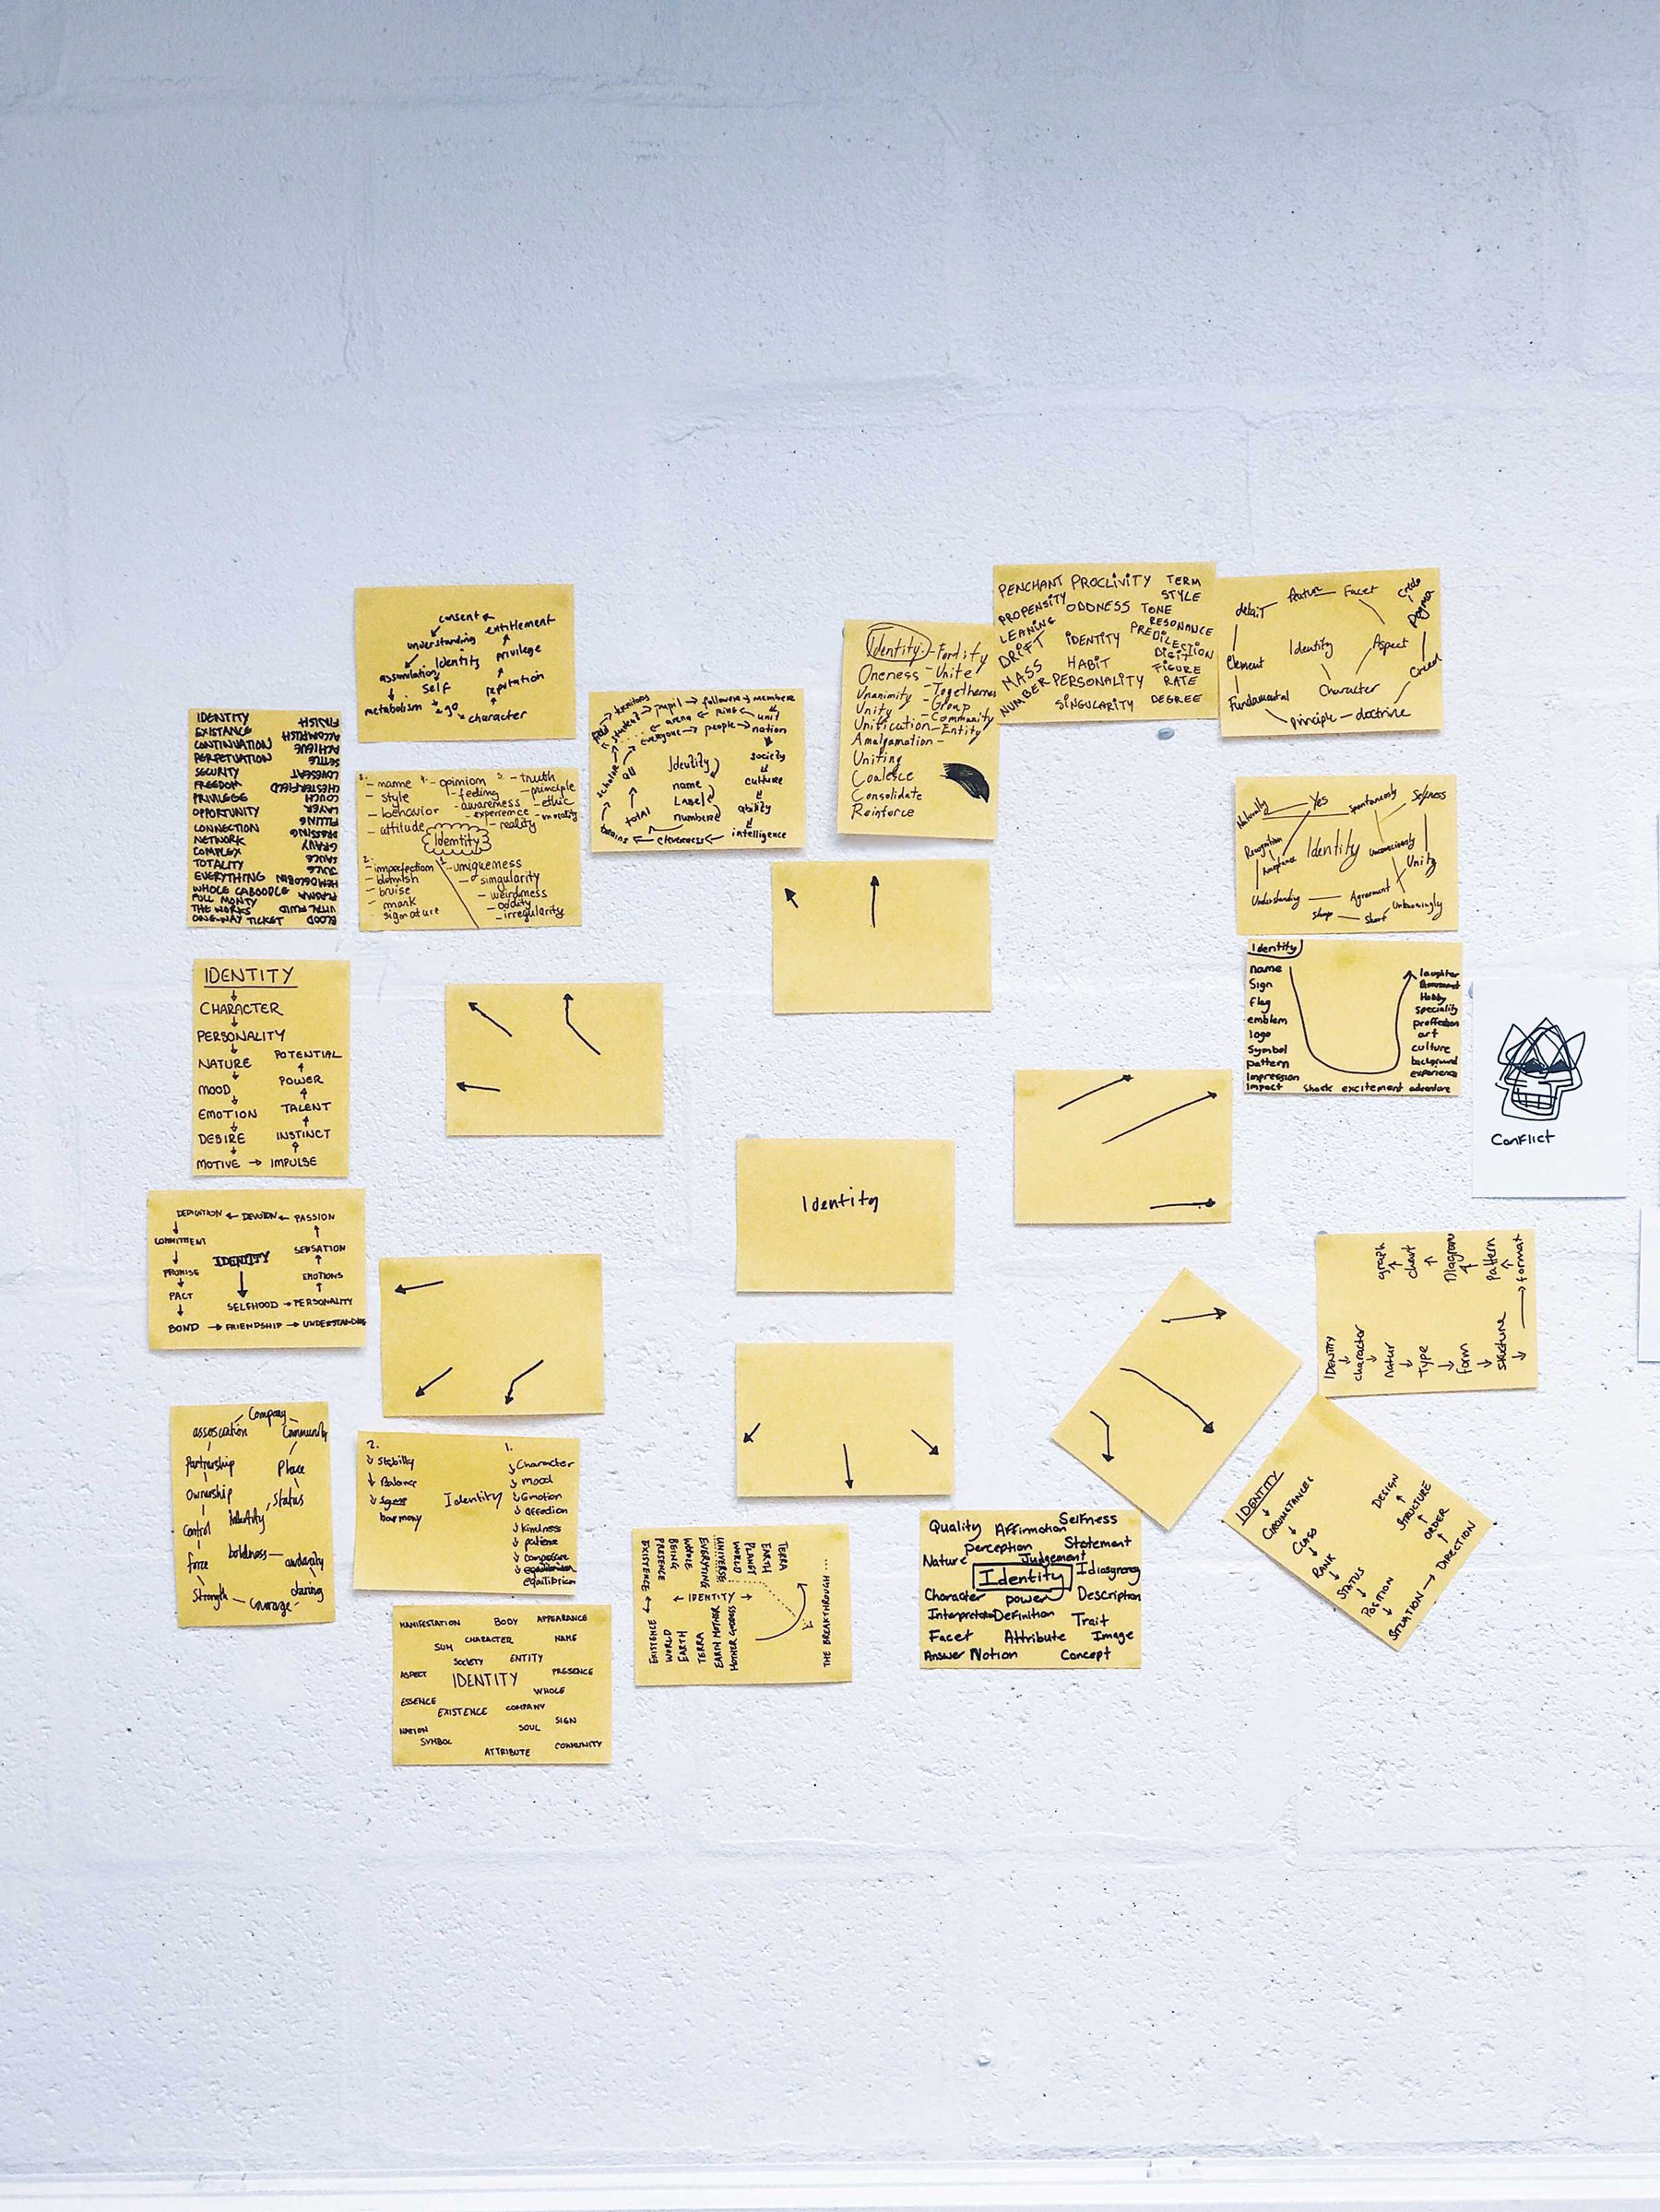 consent
understanding entitlement
assumulation Identity privilege
self reputation
metabolism ego character
IDENTITY
EXISTANCE
CONTINUATION
PERPETUATION
SECURITY
FREEDOM
PRIVILEGE
OPPORTUNITY
CONNECTION
NETWORK
COMPLEX
TOTALITY
EVERYTHING
WHOLE CABOODLE
FULL MONTY
THE WORKS
ONE-WAY TICKET
BLOOD
VITAL FLUID
PLASMA
HEMOGLOBEN
JUICE
SAUCE
GRAVY
DRESSING
FILLING
LAYER
COUCH
CHESTERFIELD
LOVESEAT
SETTLE
ACHIEVE
ACCOMPLISH
FINISH
3. - name 4. - opinion 5. - truth
- style - feeling - principle
- behavior - awareness - ethic
- attitude - experience - morality
- reality
Identity
2. - imperfection 1. - uniqueness
- blemish - singularity
- bruise - weirdness
- mark - oddity
- signature - irregularity
field territory
student pupil follower members
arena ring unit
everyone people nation
scholar all Identity society
name culture
total Label ability
numbere
brains cleverness intelligence
Identity - Fordify
Oneness - Unite
Unanimity - Togetherness
Unity - Group
Unification - Community
Amalgamation - Entity
Uniting
Coalesce
Consolidate
Reinforce
PENCHANT PROCLIVITY TERM
PROPENSITY ODDNESS TONE STYLE
LEANING RESONANCE
DRIFT IDENTITY PREDILECTION
MASS HABIT DIGIT
FIGURE
NUMBER PERSONALITY RATE
SINGULARITY DEGREE
detail feature Facet credo
Dogma
Element Identity Aspect
Creed
Fundamental Character
principle - doctrine
Naturally Yes Spontaneously Selfness
Recognition Identity Unconsciously
Acceptance Unity
Understanding Agreement
Sharp Short Unknowingly
Identity
name laughter
Sign
flag Hobby
emblem speciality
logo proffession
art
Symbol culture
pattern background
Impression experience
Impact Shock excitement adventure
Conflict
IDENTITY
CHARACTER
PERSONALITY
NATURE POTENTIAL
MOOD POWER
EMOTION TALENT
DESIRE INSTINCT
MOTIVE → IMPULSE
Identity
DEDICATION ← DEVOTION ← PASSION
COMMITMENT SENSATION
IDENTITY
PROMISE EMOTIONS
PACT SELFHOOD → PERSONALITY
BOND → FRIENDSHIP → UNDERSTANDING
graph chart Diagram pattern format
IDENTITY character natur TYPE form structure
company
association community
Partnership Place
Ownership Status
Control Identity
force boldness - audacity
Strength - Courage - daring
2. 1.
Stability Character
Balance mood
Identity Emotion
harmony affection
kindness
patience
composure
equilibrium
IDENTITY
CIRCUMSTANCES
CLASS
RANK
STATUS
POSITION
SITUATION → DIRECTION
ORDER
STRUCTURE
DESIGN
EXISTENCE
PRESENCE
BEING
WHOLE
EVERYTHING
UNIVERSE
WORLD
PLANET
EARTH
TERRA
← IDENTITY →
EXISTENCE
WORLD
EARTH
TERRA
EARTH MOTHER
MOTHER GODDESS
THE BREAKTHROUGH....
Quality Affirmation Selfness
Perception Statement
Nature Judgement
Identity Idiosyncrasy
Character power Description
Interpretation Definition Trait
Facet Attribute Image
Answer Notion Concept
MANIFESTATION BODY APPEARANCE
SUM CHARACTER NAME
SOCIETY ENTITY
ASPECT IDENTITY PRESENCE
ESSENCE WHOLE
EXISTENCE COMPANY
NATION SOUL SIGN
SYMBOL
ATTRIBUTE COMMUNITY